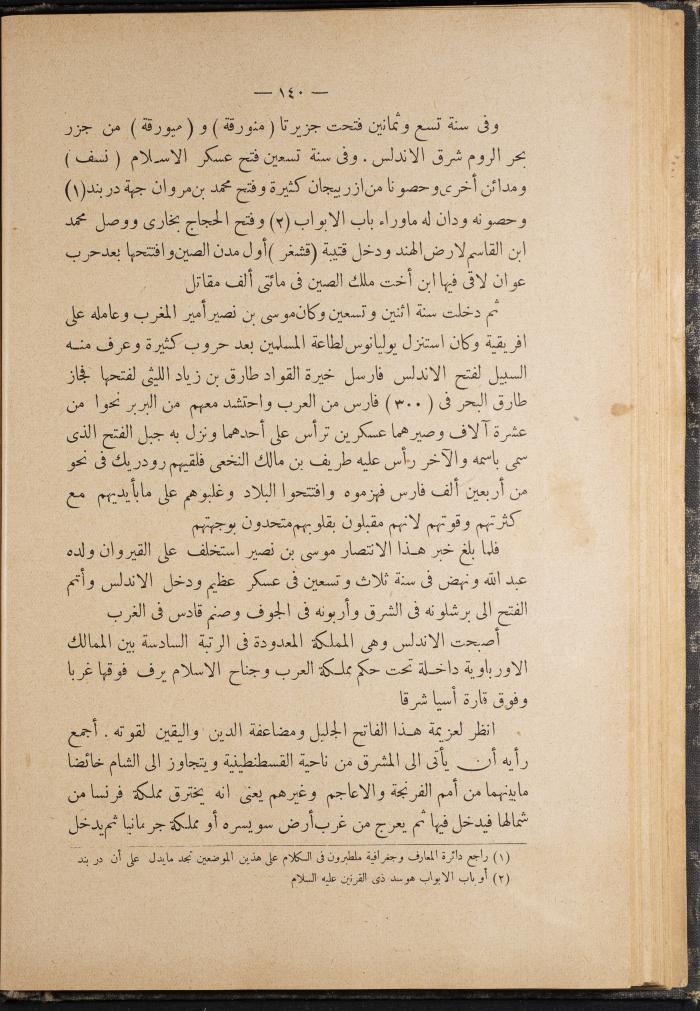 — ١٤٠ —
وفى سنة تسع وثمانين فتحت جزيرتا ( منورقة ) و ( ميورقة ) من جزر
بحر الروم شرق الاندلس . وفى سنة تسعين فتح عسكر الاسلام ( نسف )
ومدائن أخرى وحصونا من ازربيجان كثيرة وفتح محمد بن مروان جهة دربند (١)
وحصونه ودان له ماوراء باب الابواب (٢) وفتح الحجاج بخارى ووصل محمد
ابن القاسم لارض الهند ودخل قتيبة (قشغر ) أول مدن الصين وافتتحها بعد حرب
عوان لاقى فيها ابن أخت ملك الصين فى مائتى ألف مقاتل
ثم دخلت سنة اثنين وتسعين وكان موسى بن نصير أمير المغرب وعامله على
افريقية وكان استنزل يوليانوس لطاعة المسلمين بعد حروب كثيرة وعرف منه
السبيل لفتح الاندلس فارسل خيرة القواد طارق بن زياد الليثى لفتحها فجاز
طارق البحر فى ( ٣٠٠ ) فارس من العرب واحتشد معهم من البربر نحوا من
عشرة آلاف وصيرهما عسكرين ترأس على أحدهما ونزل به جبل الفتح الذى
سمى باسمه والآخر رأس عليه طريف بن مالك النخعى فلقيهم رودريك فى نحو
من أربعين ألف فارس فهزموه وافتتحوا البلاد وغلبوهم على مابأيديهم مع
كثرتهم وقوتهم لانهم مقبلون بقلوبهم متحدون بوجهتهم
فلما بلغ خبر هذا الانتصار موسى بن نصير استخلف على القيروان ولده
عبد الله ونهض فى سنة ثلاث وتسعين فى عسكر عظيم ودخل الاندلس وأتمم
الفتح الى برشلونه فى الشرق وأربونه فى الجوف وصنم قادس فى الغرب
أصبحت الاندلس وهى المملكة المعدودة فى الرتبة السادسة بين الممالك
الاورباوية داخلة تحت حكم مملكة العرب وجناح الاسلام يرف فوقها غربا
وفوق قارة أسيا شرقا
انظر لعزيمة هذا الفاتح الجليل ومضاعفة الدين واليقين لقوته . أجمع
رأيه أن يأتى الى المشرق من ناحية القسطنطينية ويتجاوز الى الشام خائضا
مابينهما من أمم الفرنجة والاعاجم وغيرهم يعنى انه يخترق مملكة فرنسا من
شمالها فيدخل فيها ثم يعرج من غرب أرض سويسره أو مملكة جرمانيا ثم يدخل
(١) راجع دائرة المعارف وجغرافية ملطبرون فى الكلام على هذين الموضعين تجد مايدل على أن دربند
(٢) أو باب الابواب هو سد ذى القرنين عليه السلام